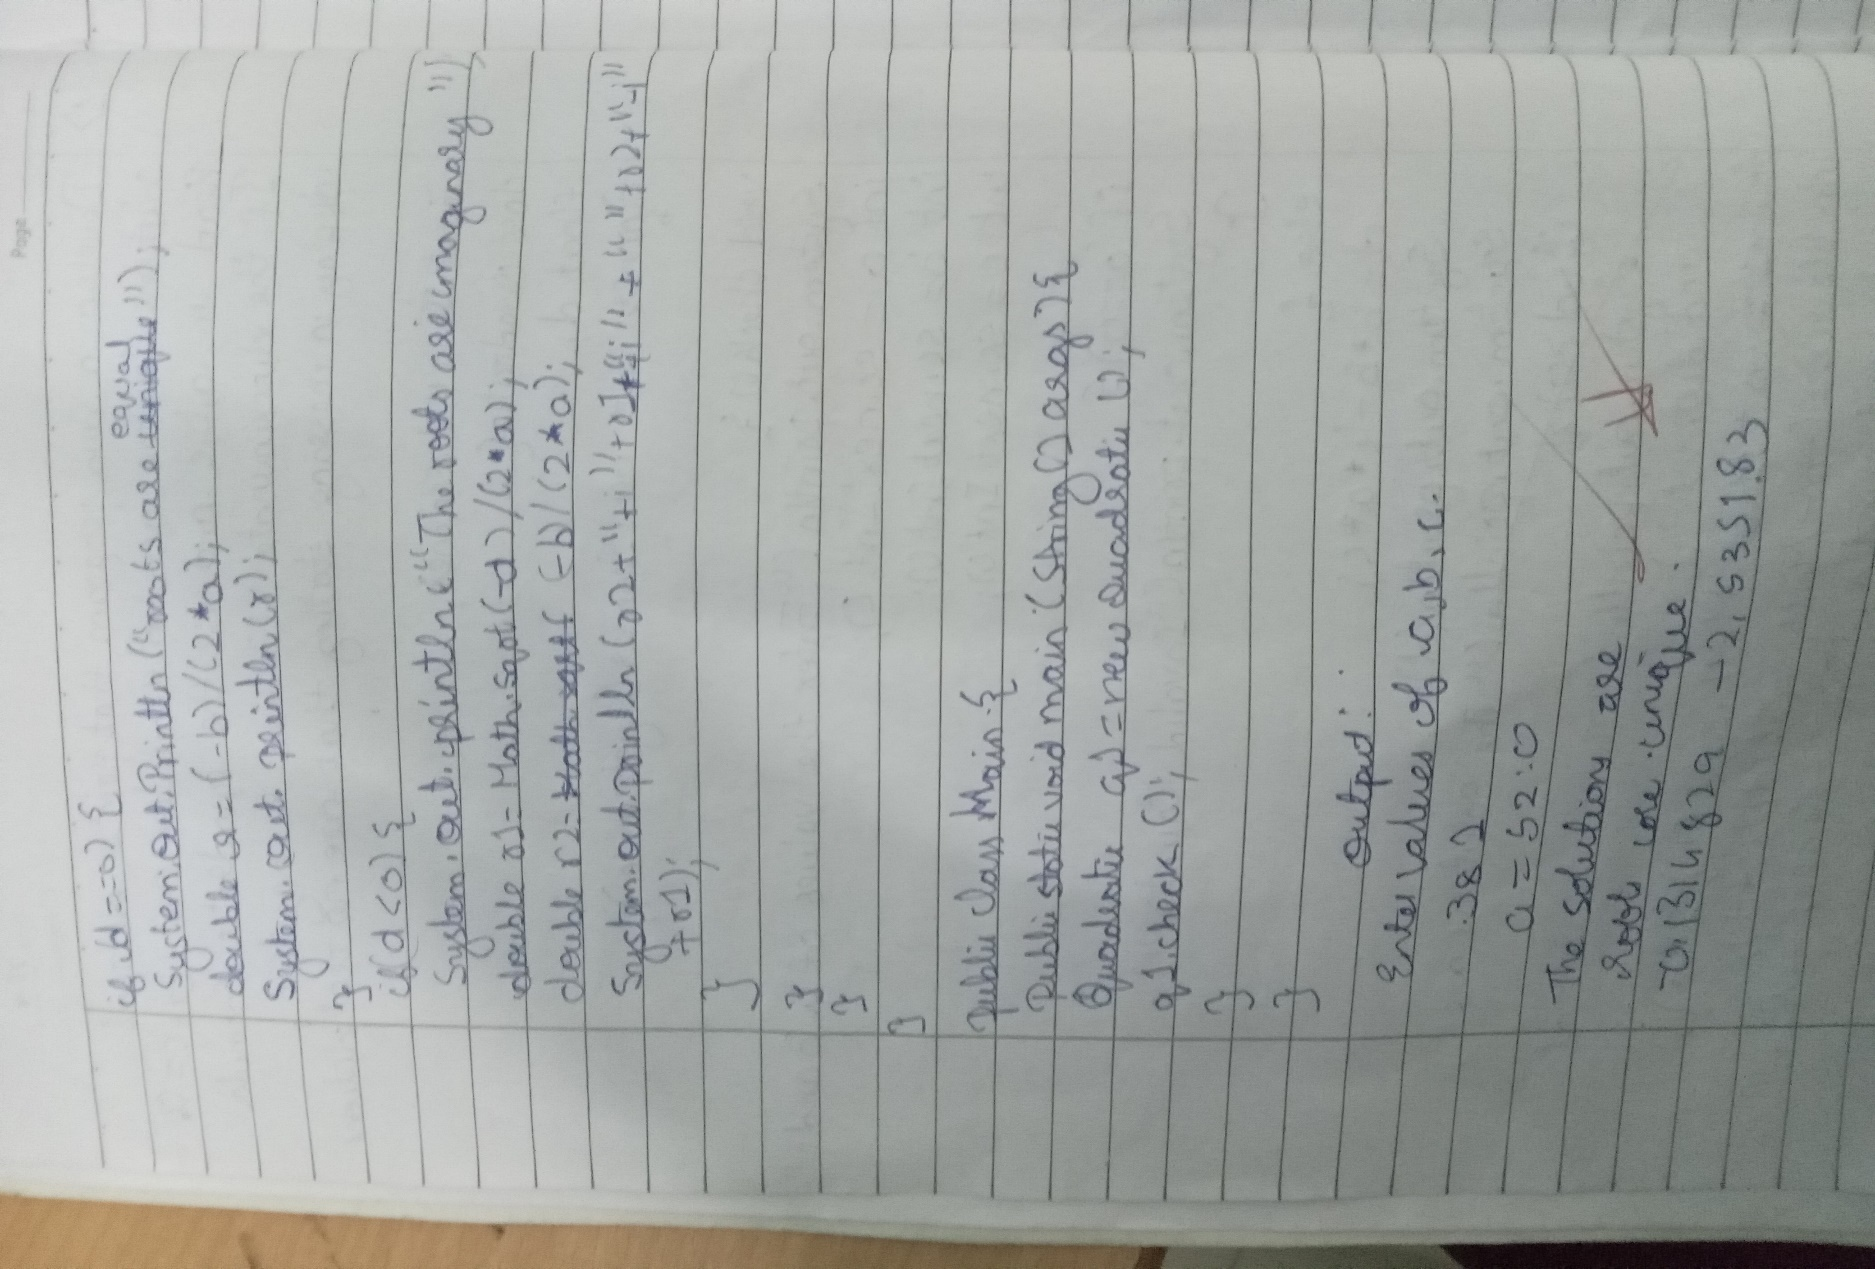 Page
if (d==0) {
System.out.Println ("roots are equal");
double r = (-b)/(2*a);
System.out.println(r);
}
if(d<0) {
System.out.println("The roots are imaginary");
double r1= Math.sqrt(-d)/(2*a);
double r2= (-b)/(2*a);
System.out.println(r2+"+i"+r1+" "+r2+"-i"
+r1);
}
}
}
}
public class Main {
Public static void main (String[] args) {
Quadratic q1=new Quadratic ();
q1.check();
}
}
Output:
Enter values of a, b, c.
3 8 1
d = 52.0
The solutions are
Root are unique.
-0.1314829 -2.535183